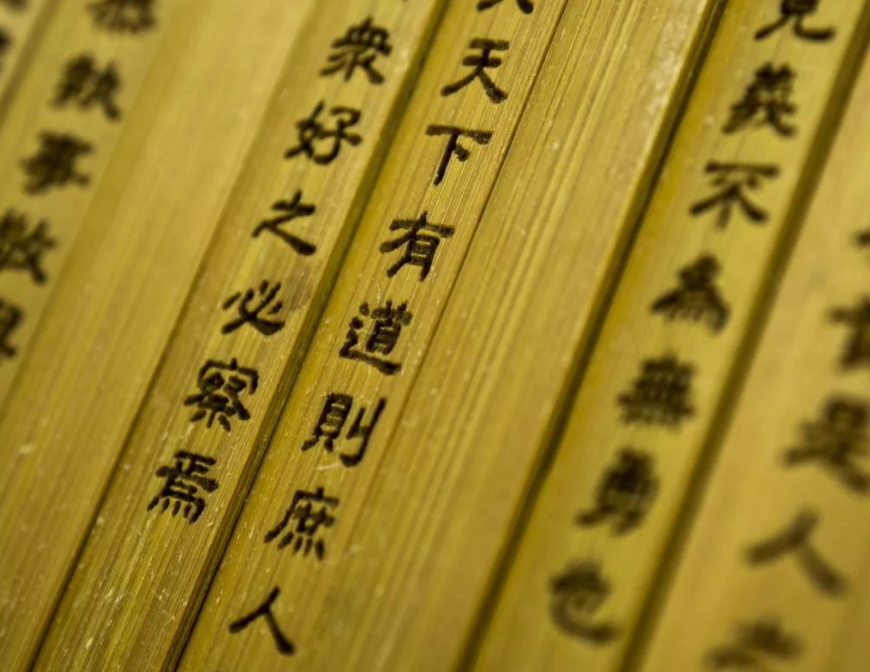 是人
見義不為無勇也
天下有道則庶人
衆好之必察焉
執事敬與